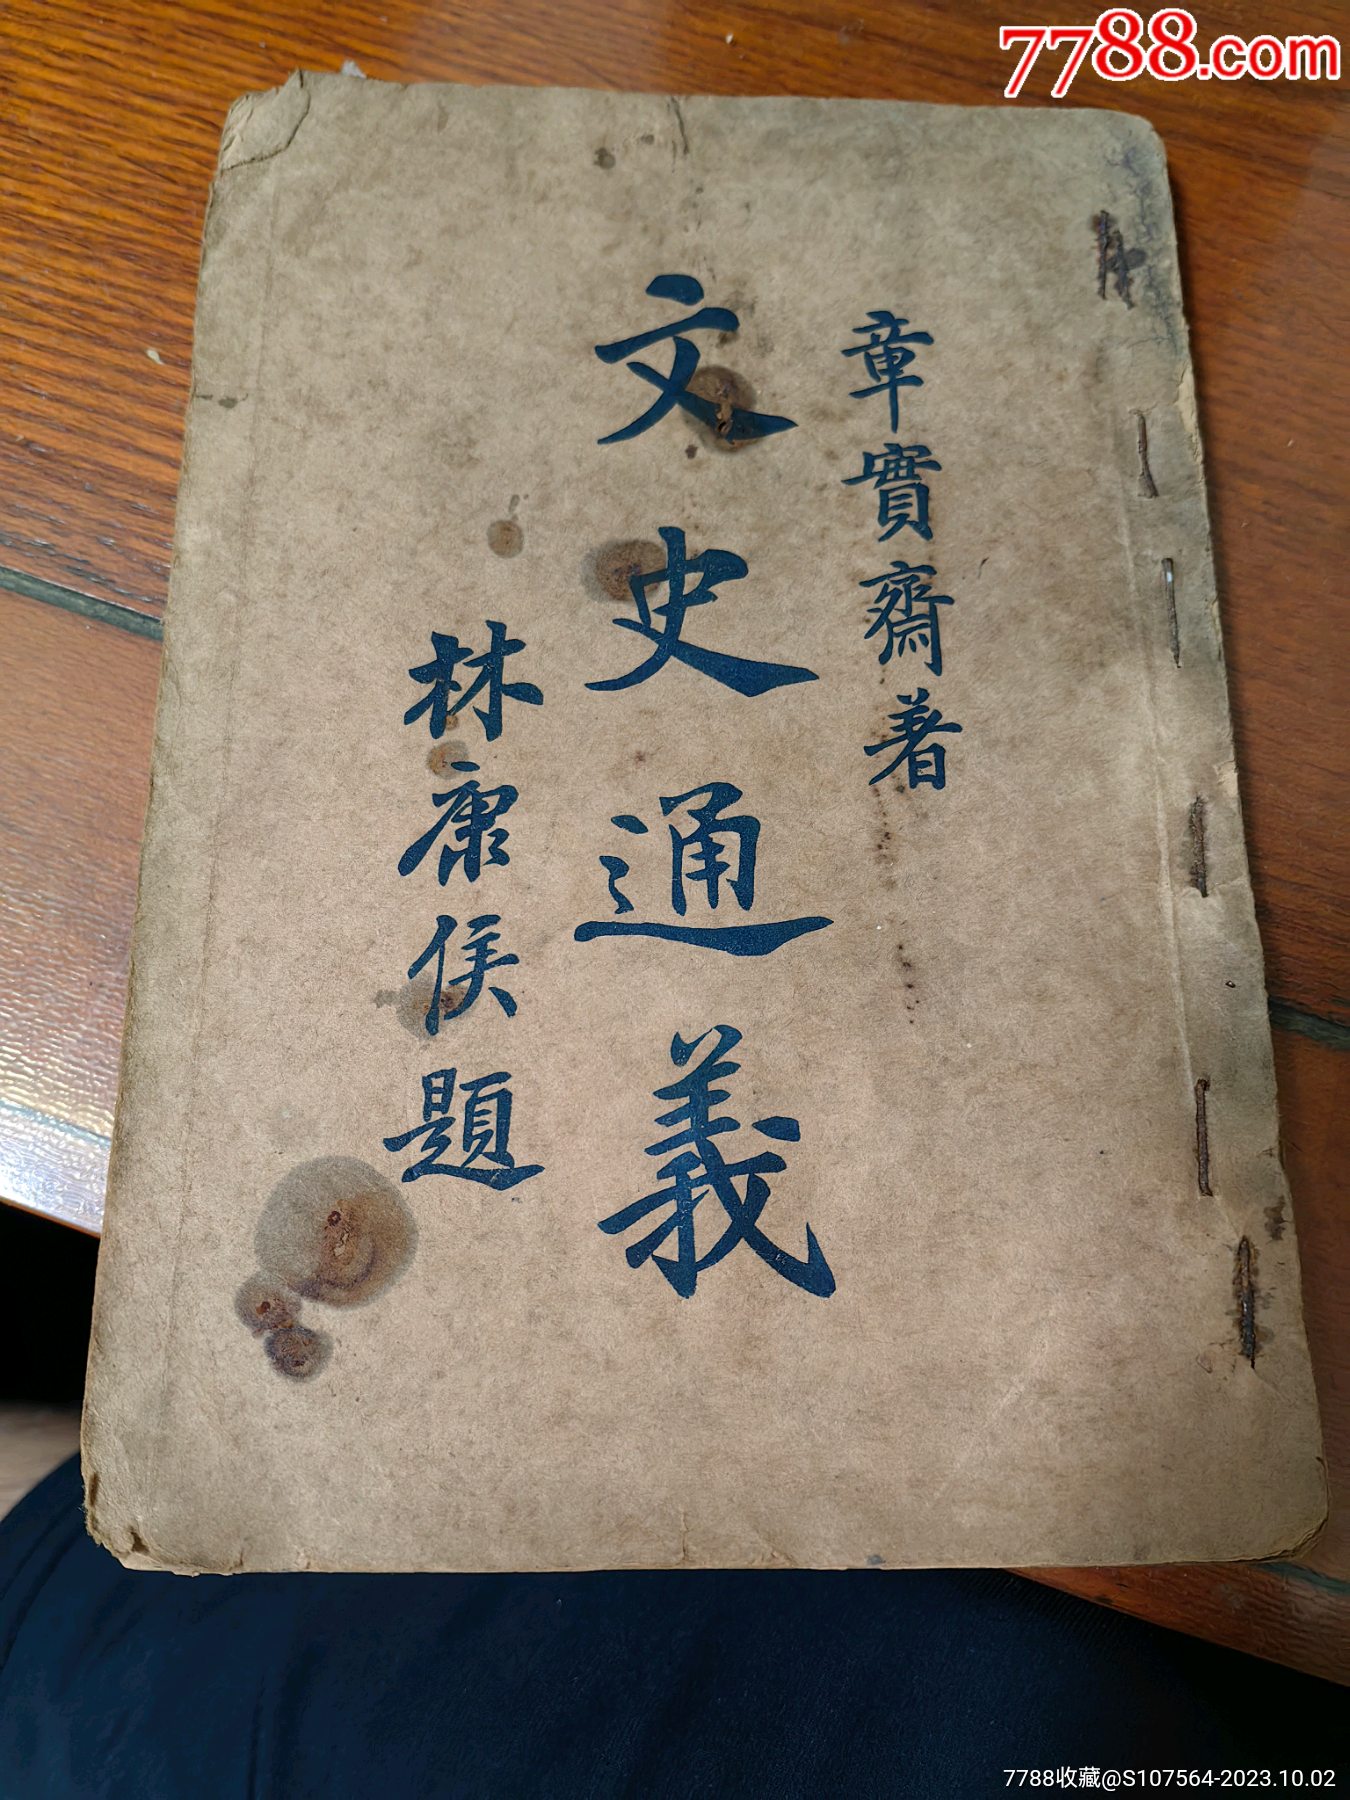 7788.com
章實齋著
文史通義
林康侯題
7788收藏@S107564-2023.10.02